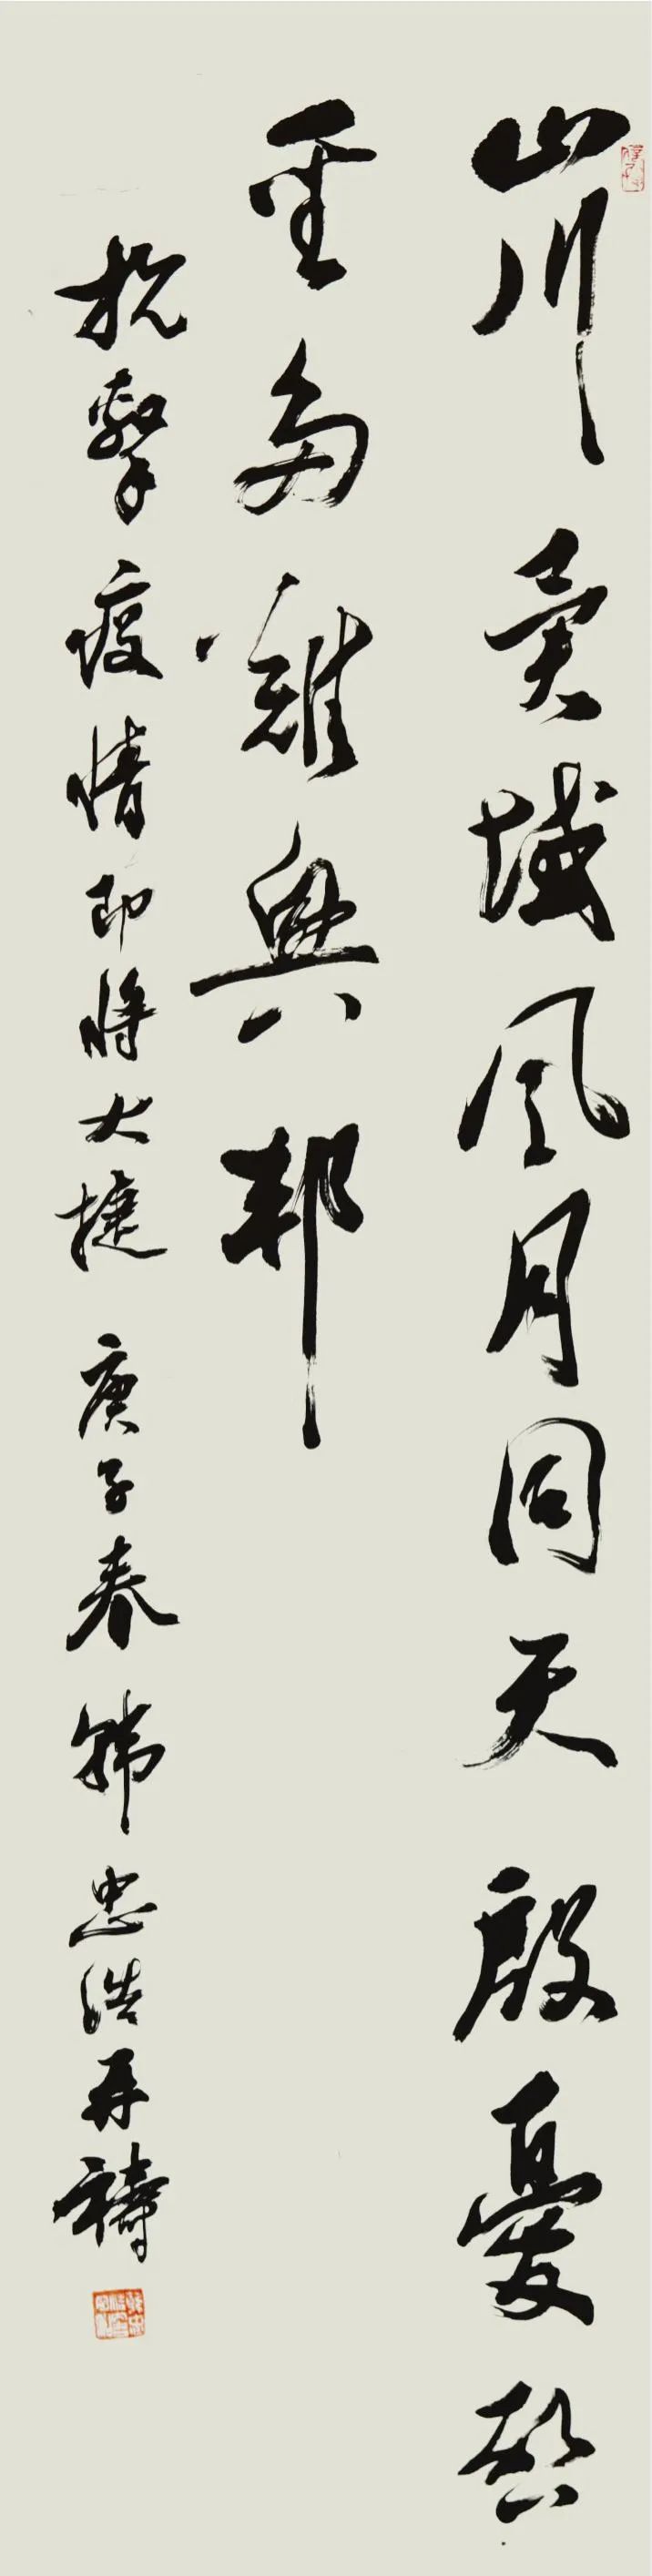 山川異域風月同天殷憂啓
聖多難興邦
抗擊疫情即將大捷 庚子春 韓忠浩再禱